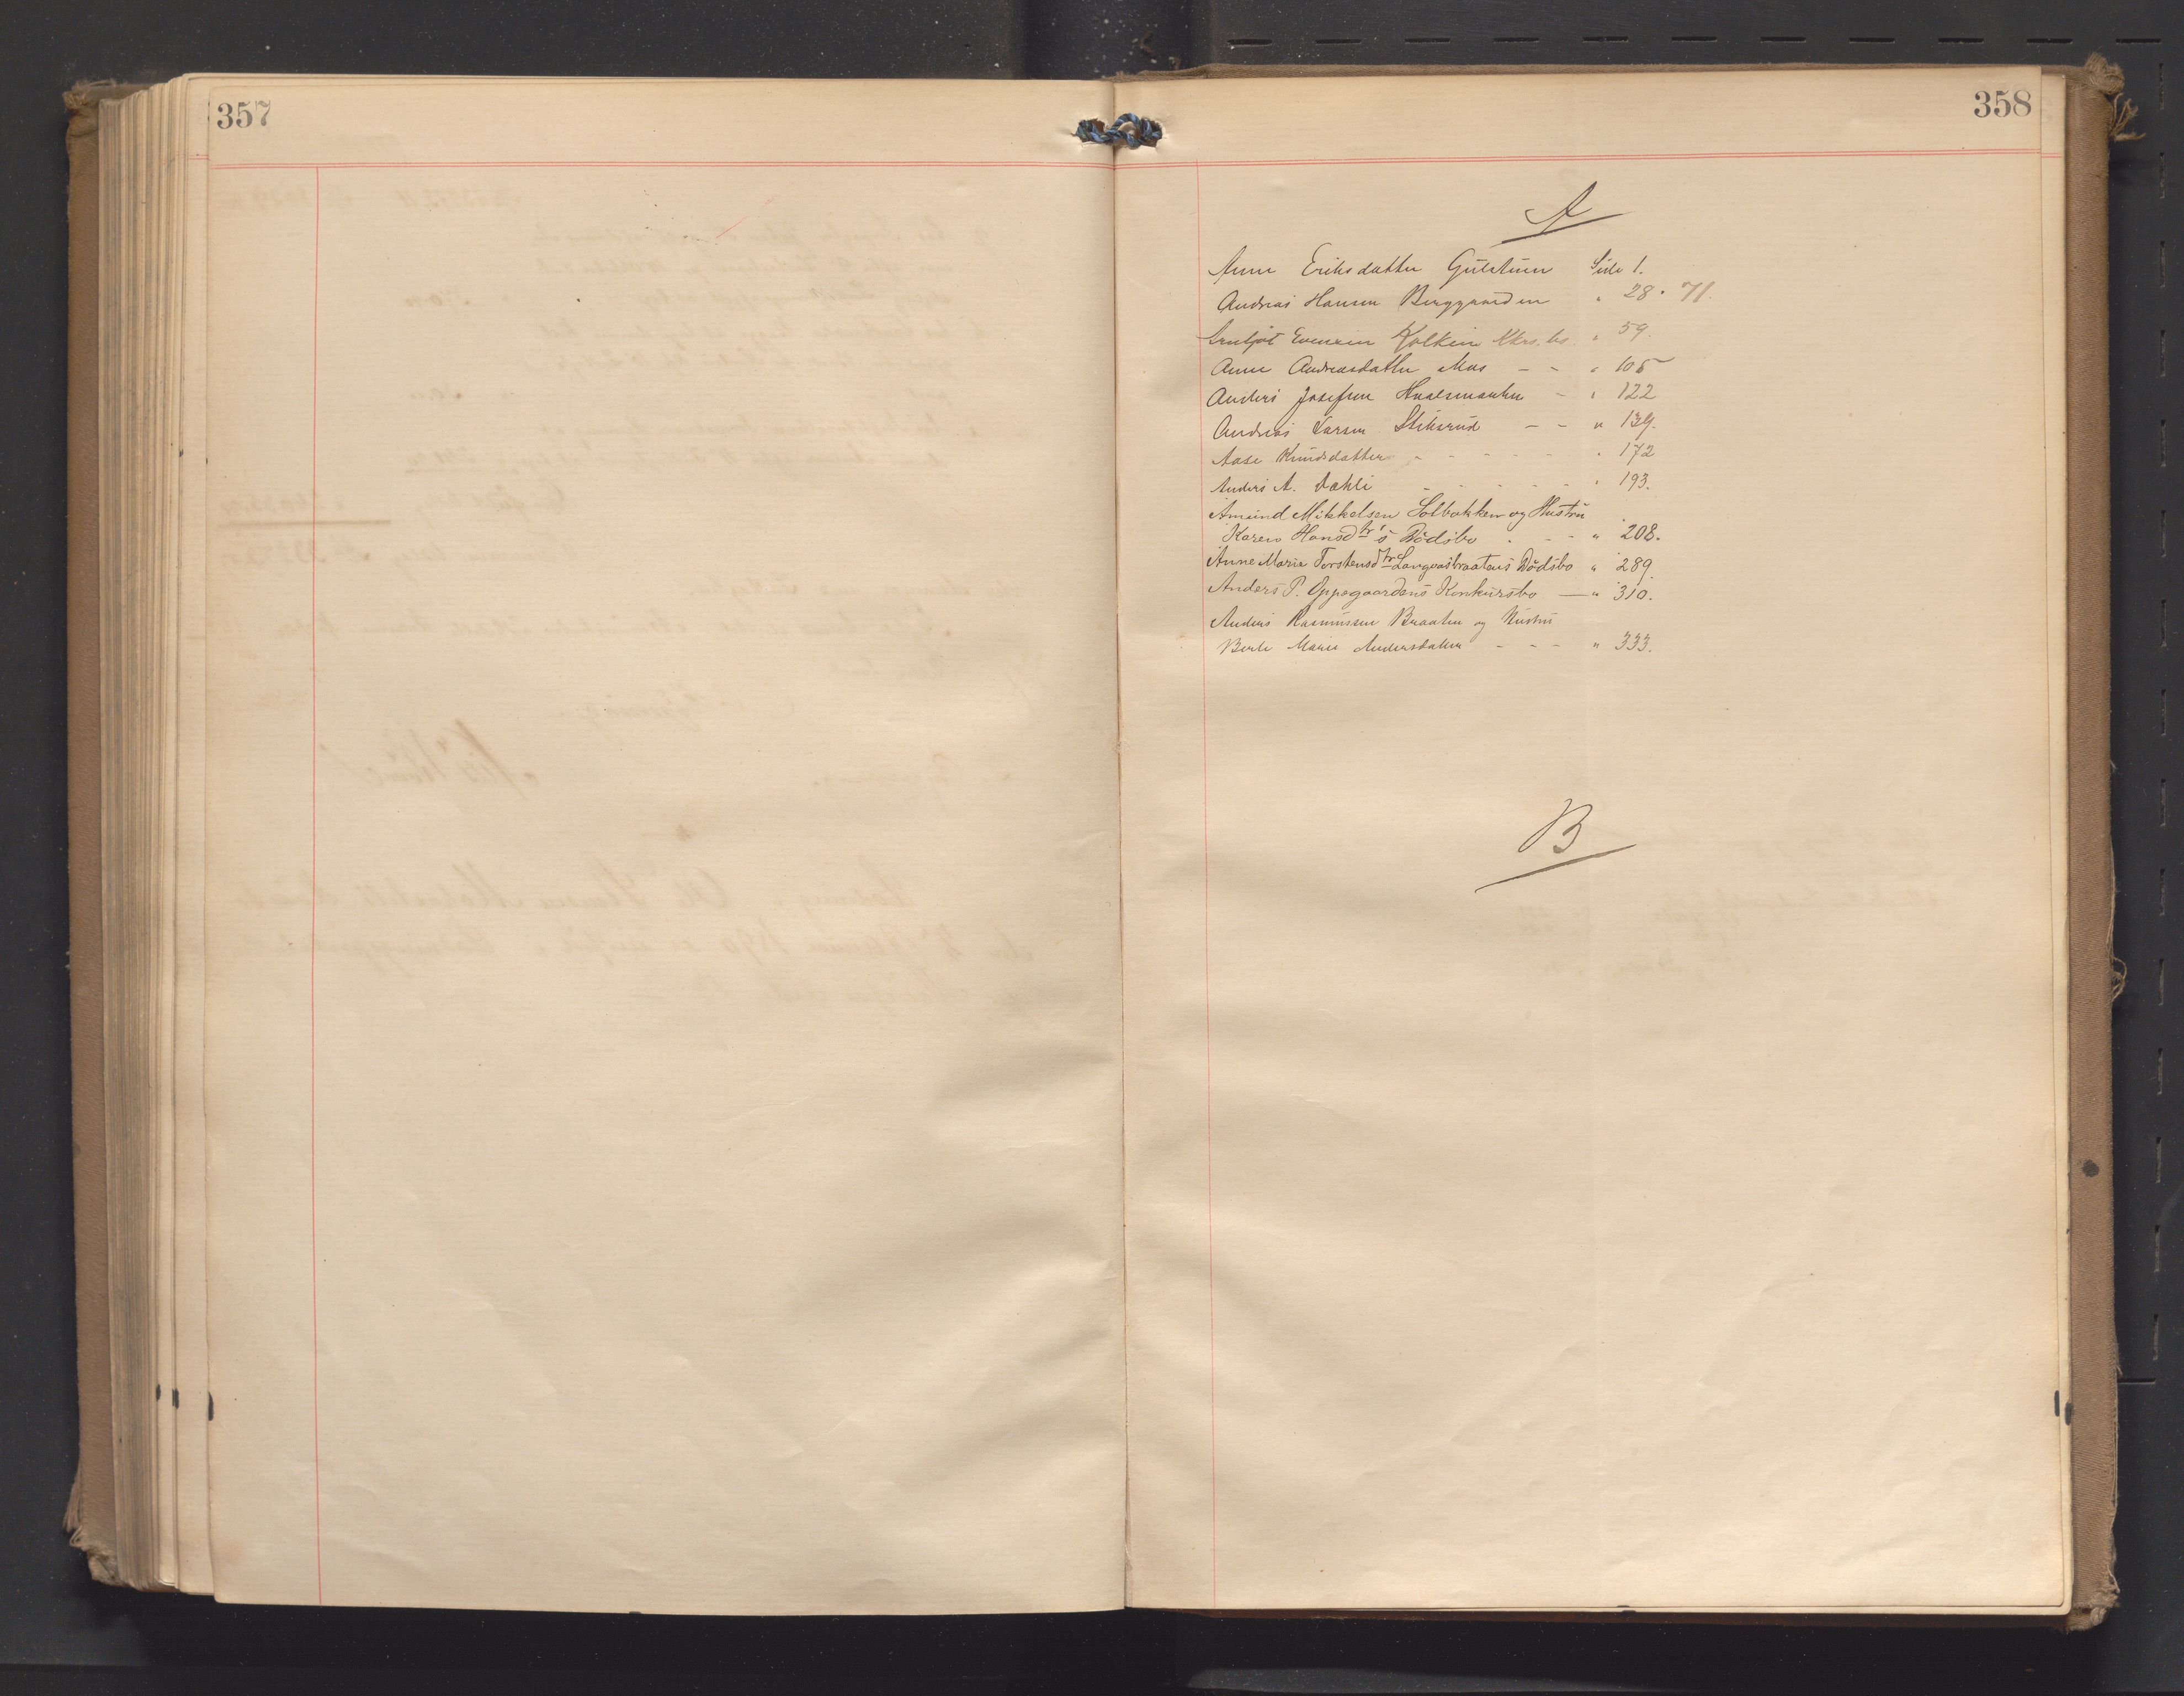 357
358
A
Anne Eriksdatter Gulstuen Side 1.
Andreas Hansen Berggaarden " 28 . 71.
Evensen Kolkin " 59.
Anne Andreasdatter Moe - - " 105
Anders Josefsen - " 122
Andreas Larsen Stiksrud - - " 139.
Aase Knudsdatter - - - - - " 172
Anders A. Dahli - - - - - " 193.
Amund Mikkelsen Solbakken og Hustru
Karen Hansdtr's Dödsbo . - - " 208.
Anne Marie Torstensdtr Langaasbraatens Dödsbo " 289.
Anders P. Oppegaardens Konkursbo — " 310.
Anders Rasmussen Braaten og Hustru
Berte Marie Andersdatter - - - " 333.
B